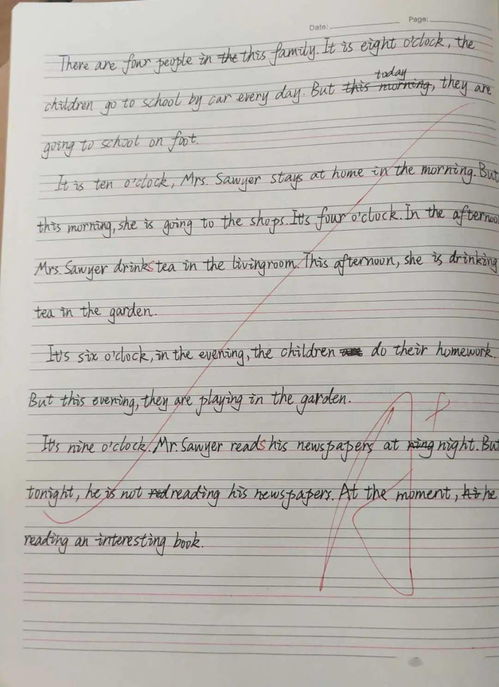 Date: Page:
There are four people in the this family. It is eight o'clock, the
today
children go to school by car every day. But this morning, they are
going to school on foot.
It is ten o'clock, Mrs. Sawyer stays at home in the morning. But
this morning, she is going to the shops. It's four o'clock. In the afternoo
Mrs. Sawyer drinks tea in the livingroom. This afternoon, she is drinking
tea in the garden.
It's six o'clock, in the evening, the children do their homework.
But this evening, they are playing in the garden.
It's nine o'clock. Mr. Sawyer reads his newspapers at ning night. But
tonight, he is not red reading his newspapers. At the moment, his he
reading an interesting book.
A+